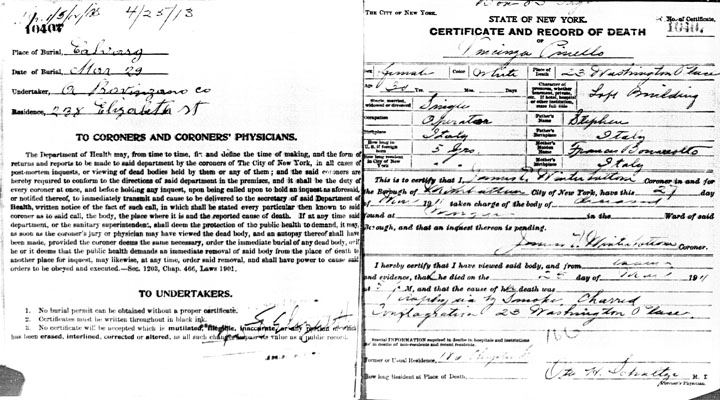 4/25/13
10407
Place of Burial, Calvary
Date of Burial, Mar 29
Undertaker,
Residence, 238 Elizabeth St
TO CORONERS AND CORONERS' PHYSICIANS.
The Department of Health may, from time to time, fix and define the time of making, and the form of
returns and reports to be made to said department by the coroners of The City of New York, in all cases of
post-mortem inquests, or viewing of dead bodies held by them or any of them; and the said coroners are
hereby required to conform to the directions of said department in the premises, and it shall be the duty of
every coroner at once, and before holding any inquest, upon being called upon to hold an inquest as aforesaid,
or notified thereof, to immediately transmit and cause to be delivered to the secretary of said Department of
Health, written notice of the fact of such call, in which shall be stated every particular then known to said
coroner as to said call, the body, the place where it is and the reported cause of death. If at any time said
department, or the sanitary superintendent, shall deem the protection of the public health to demand, it may,
as soon as the coroner's jury or physician may have viewed the dead body, and an autopsy thereof shall have
been made, provided the coroner deems the same necessary, order the immediate burial of any dead body,
he or it deems that the public health demands an immediate removal of said body from the place of death to
another place for inquest, may likewise, at any time, order said removal, and shall have power to cause said
orders to be obeyed and executed.—Sec. 1203, Chap. 466, Laws 1901.
TO UNDERTAKERS.
1. No burial permit can be obtained without a proper certificate.
2. Certificates must be written throughout in black ink.
3. No certificate will be accepted which is mutilated, illegible, inaccurate, or any portion of which
has been erased, interlined, corrected or altered, as all such changes impair its value as a public record.
THE CITY OF NEW YORK.
STATE OF NEW YORK.
No. of Certificate,
CERTIFICATE AND RECORD OF DEATH
OF
Pinello
Sex Female Color White Place of Death 23 Washington Place
Age 30 Yrs. Mos. Days Loft Building
Single, married, widowed or divorced Single
Occupation Operator Father's Name Stephen
Birthplace Italy Father's Birthplace Italy
How long in U. S. if foreign born 5 yrs Mother's Name
How long resident in City of New York Mother's Birthplace Italy
This is to certify that I, James Winterbottom Coroner in and for
the Borough of Manhattan City of New York, have this day
of 1911 taken charge of the body of deceased
found at Morgue in the Ward of said
Borough, and that an inquest thereon is pending.
Coroner.
I hereby certify that I have viewed said body, and from
and evidence, that he died on the 25 day of March 1911
at M., and that the cause of her death was
Asphyxia by Smoke, Charred
Conflagration 23 Washington Place
Special INFORMATION required in deaths in hospitals and institutions
and in deaths of non-residents and recent residents.
Former or Usual Residence,
How long Resident at Place of Death,
M. D.
Coroner's Physician.